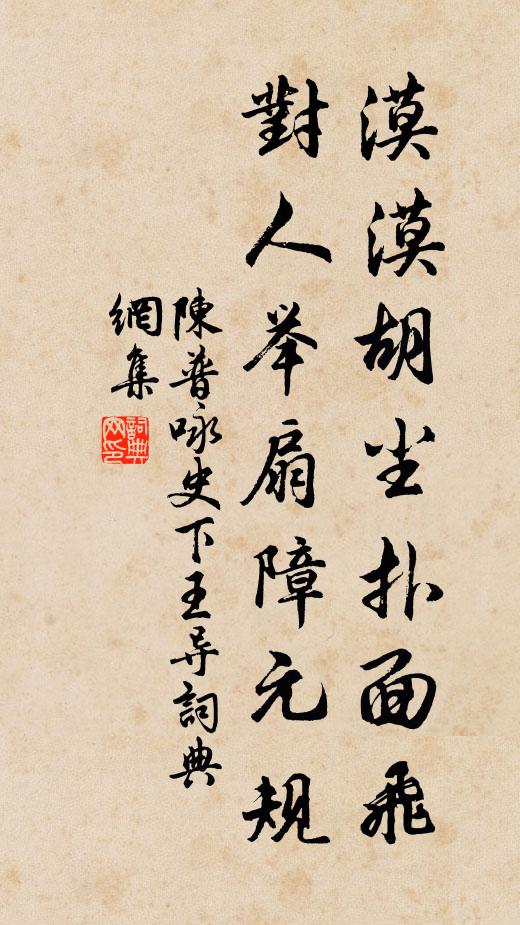 漠漠胡尘扑面飛
對人举扇障元规
陳普咏史下王导詞典
網集
詞典
网印